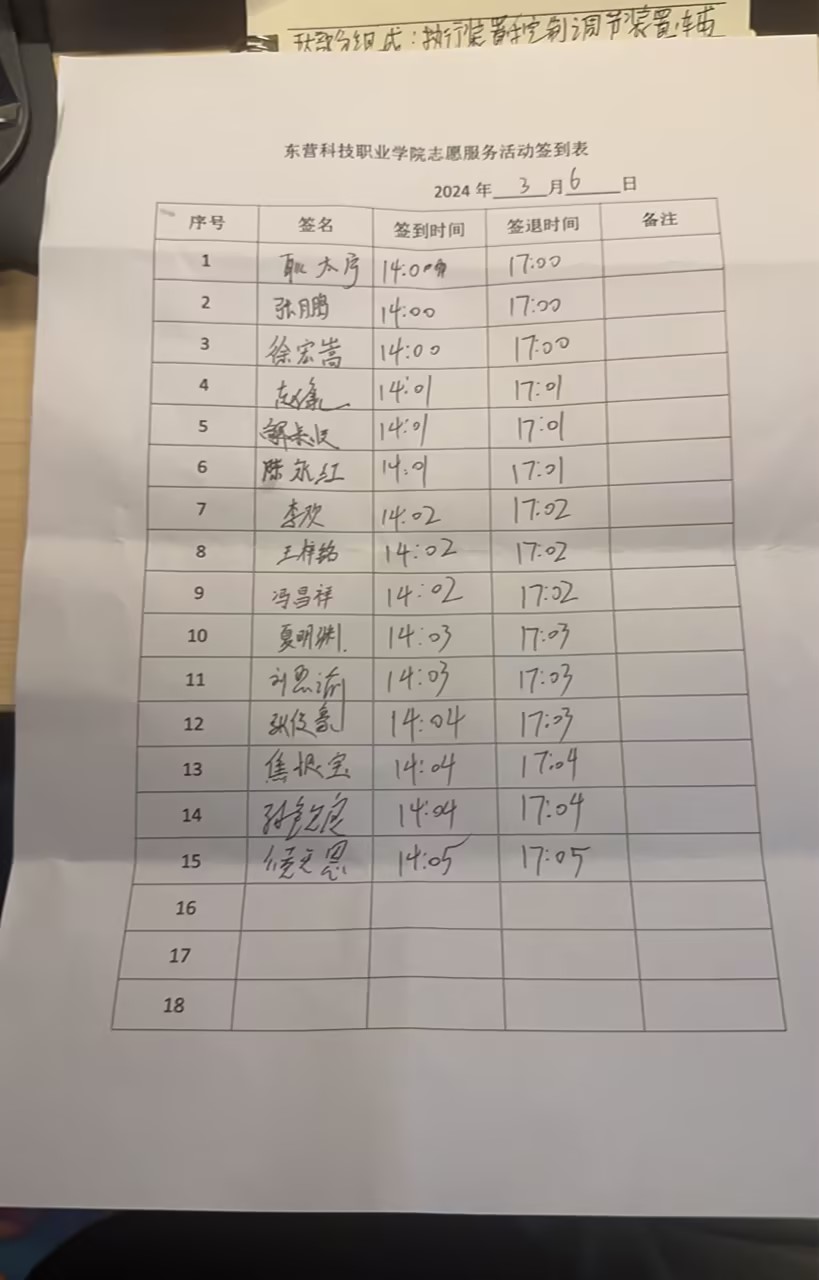 东营科技职业学院志愿服务活动签到表
2024 年 3 月 6 日
序号 签名 签到时间 签退时间 备注
1 14:00 17:00
2 张鹏 14:00 17:00
3 徐宏嵩 14:00 17:00
4 14:01 17:01
5 14:01 17:01
6 陈永红 14:01 17:01
7 李欢 14:02 17:02
8 王梓铭 14:02 17:02
9 冯昌祥 14:02 17:02
10 夏明渊 14:03 17:03
11 刘思渝 14:03 17:03
12 张俊豪 14:04 17:03
13 焦振宝 14:04 17:04
14 14:04 17:04
15 14:05 17:05
16
17
18